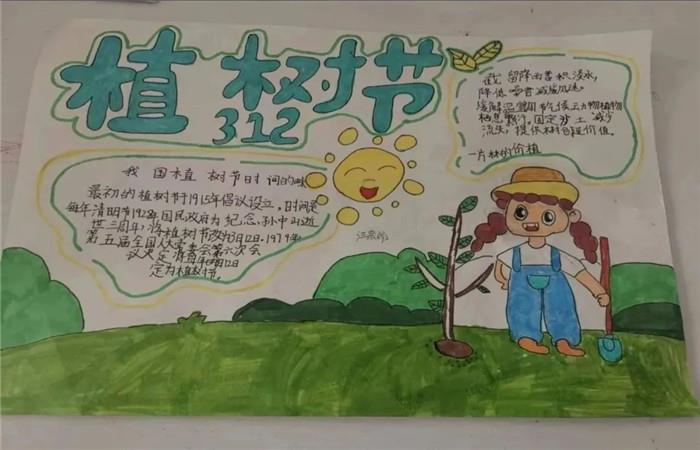 植树节
3.12
我国植树节时间的
最初的植树节于1915年倡议设立,时间是
每年清明节1928年国民政府为纪念孙中山逝
世三周年,将植树节改为3月12日.1979年
第五届全国人大常委会第六次会
议决定将每年3月12日
定为植树节.
截留降雨蓄积淡水,
降低噪音减缓风速,
缓解温 节气候云力物植物
栖息 固定沙土减少
流失,提供树 价值.
一片林的价植